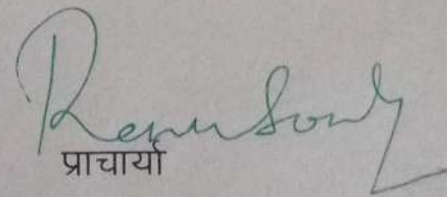 Renu Sony
प्राचार्या